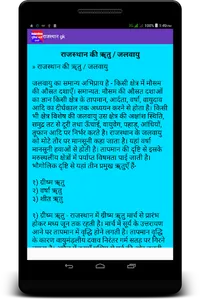 राजस्थान gk
राजस्थान की ऋतु / जलवायु
» राजस्थान की ऋतु / जलवायु
जलवायु का सामान्य अभिप्राय है - किसी क्षेत्र में मौसम
की औसत दशाएँ। सामान्यतः मौसम की औसत दशाओं
का ज्ञान किसी क्षेत्र के तापमान, आर्द्रता, वर्षा, वायुदाब
आदि का दीर्घकाल तक अध्ययन करने से होता है। किसी
भी क्षेत्र विशेष की जलवायु उस क्षेत्र की अक्षांश स्थिति,
समुद्र तट से दूरी तथा ऊँचाई, वायुवेग, पहाड़, आंधियाँ,
तूफान आदि पर निर्भर करती है। राजस्थान के जलवायु
को मोटे तौर पर मानसूनी कहा जाता है। यहां वर्षा
मानसूनी हवाओं से होती है। तापमान की दृष्टि से इसके
मरुस्थलीय क्षेत्रों में पर्याप्त विषमता पाई जाती है।
भौगोलिक दृष्टि से यहां तीन प्रमुख ऋतुएँ हैं-
१) ग्रीष्म ऋतु
२) वर्षा ऋतु
३) शीत ऋतु
१) ग्रीष्म ऋतु - राजस्थान में ग्रीष्म ऋतु मार्च से प्रारंभ
होकर मध्य जून तक रहती है। मार्च में सूर्य के उत्तरायण
आने पर तापमान में वृद्धि होने लगती है। तापमान वृद्धि
के कारण वायुमंडलीय दवाव निरंतर गर्म सतह पर गिरने